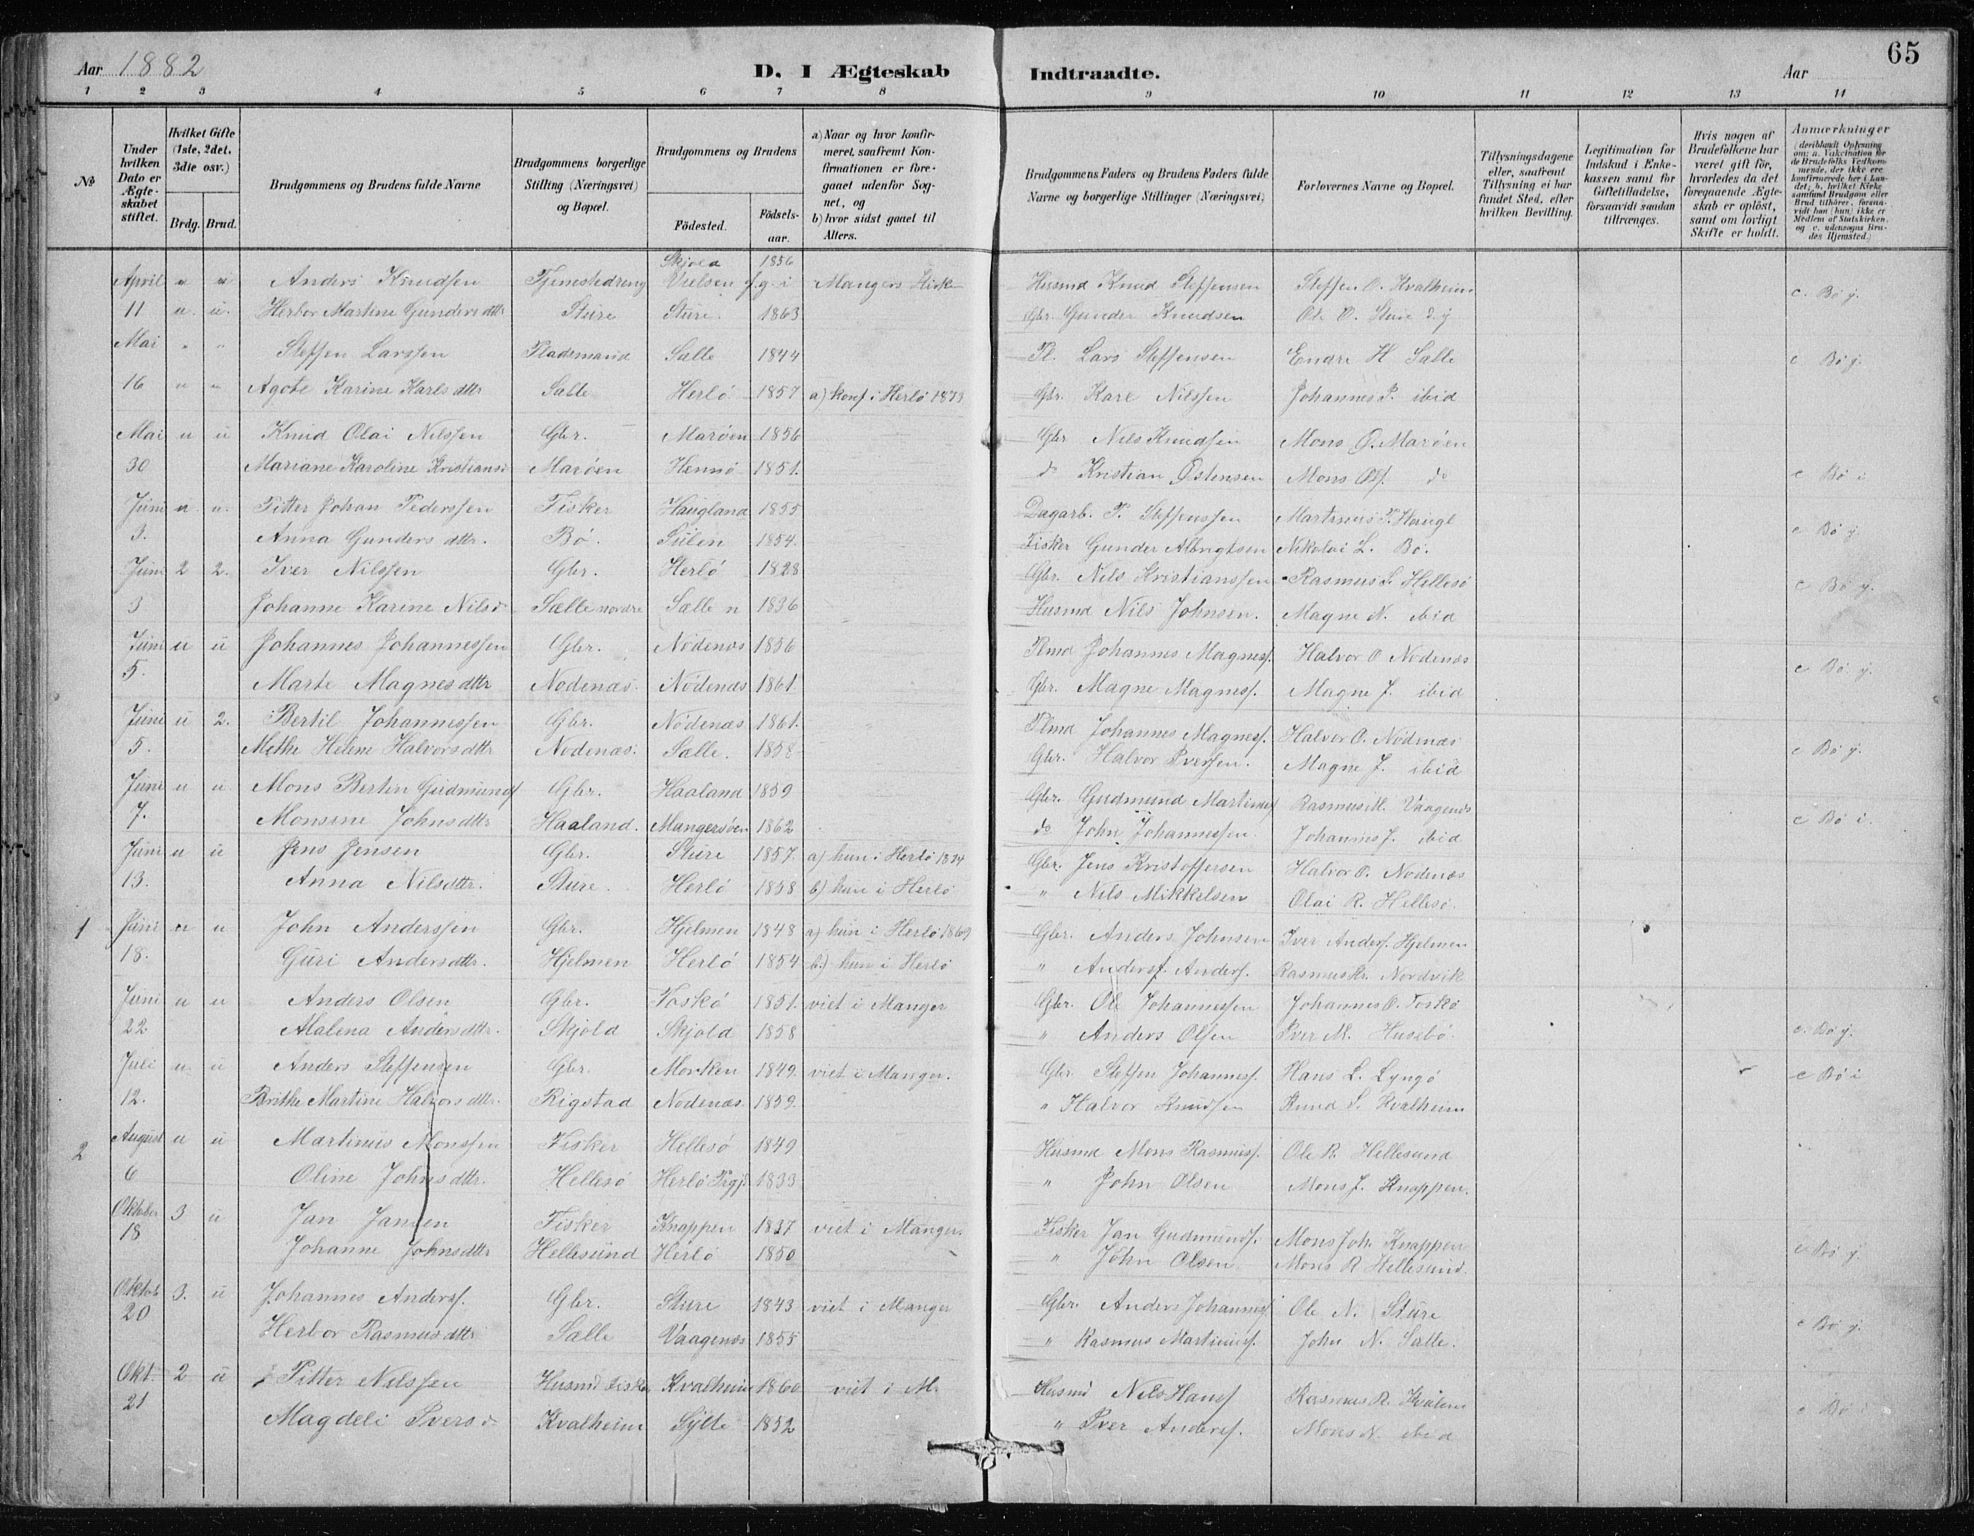 65
Aar 1882
D. I Ægteskab Indtraadte.
Aar
1 2 3 4 5 6 7 8 9 10 11 12 13 14
№
Under hvilken Dato er Ægteskabet stiftet.
Hvilket Gifte (1ste, 2det, 3die osv.)
Brdg. Brud.
Brudgommens og Brudens fulde Navne
Brudgommens borgerlige Stilling (Næringsvei) og Bopæl.
Brudgommens og Brudens
Födested. Födselsaar.
a) Naar og hvor konfirmeret, saafremt Konfirmationen er foregaaet udenfor Sognet, og
b) hvor sidst gaaet til Alters.
Brudgommens Faders og Brudens Faders fulde Navne og borgerlige Stillinger (Næringsvei)
Forlovernes Navne og Bopæl.
Tillysningsdagene eller, saafremt Tillysning ei har fundet Sted, efter hvilken Bevilling.
Legitimation for Indskud i Enkekassen samt for Giftetilladelse, forsaavidt saadan tiltrænges.
Hvis nogen af Brudefolkene har været gift för, hvorledes da det foregaaende Ægteskab er oplöst, samt om lovligt Skifte er holdt.
Anmærkninger
(deriblandt Oplysning om: a. Vakcination for de Brudefolks Vedkommende, der ikke ere konfirmerede her i Landet; b. hvilket Kirkesamfund Brudgom eller Brud tilhörer, forsaavidt han (hun) ikke er Medlem af Statskirken, og c. udensogns Brudes Hjemsted.)
Skjold 1856
April " " Anders Knudsen Tjenestedreng f. g. i Mangers Kirke Husmd Knud Steffensen Steffen O. Kvalheim c. Bø y.
11 u. u. Herbor Martine Gundersdttr Sture Sture 1863 Gbr. Gunder Knudsen Ole O. Sture
Mai " " Steffen Larssen Pladsmand Sälle 1844 Pl. Lars Steffensen Endre H Sälle c Bø y.
16 " " Agote Karine Karlsdttr Sälle Herlö 1857 a) konf i Herlö 1873 Gbr. Karl Nilssen Johannes P. ibid
Mai u u Knud Olai Nilssen Gbr. Maröen 1856 Gbr Nils Knudsen Mons O. Maröen
30 Mariane Karoline Kristiansd Maröen Hennö 1851. do Kristian Östensen Mons Ols. do c Bø i
Juni u u. Pitter Johan Pederssen Fisker Haugland 1855 Dagarb. P. Steffenssen Martinus P. Haugl
3. Anna Gundersdttr. Bö. Sulen 1854. Fisker Gunder Albrigtsen Nikolai L. Bö. c Bø y.
Juni 2 2. Iver Nilssen Gbr. Herlö 1828 Gbr. Nils Kristianssen Rasmus L. Hellesö c Bø y.
3 Johanne Karine Nilsd Sælle nordre Sælle n 1836 Husmd Nils Johnsen. Magne N. ibid
Juni u u Johannes Johannessen Gbr. Nödenæs 1856 Plmd Johannes Magness. Halvor O. Nödenæs c Bø y.
5. Marte Magnesdttr Nödenæs. Nödenæs 1861. Gbr. Magne Magness. Magne J. ibid
Juni u 2. Bertil Johannessen Gbr. Nödenæs 1861. Plmd Johannes Magness. Halvor O. Nödenæs
5. Methe Helene Halvorsdttr Nödenæs. Sälle. 1858 Gbr. Halvor Iverssen. Magne J. ibid c Bø y.
Juni u u. Mons Bertin Gudmunds Gbr. Haaland 1859 Gbr. Gudmund Martinus Rasmus M. Vaagenæs
7. Monsine Johnsdttr Haaland. Mangersöen 1862 do John Johannessen. Johannes J. ibid c Bø i.
Juni u u Jens Jensen Gbr. Sture 1857. a) hun i Herlö 1874 Gbr. Jens Kristoffersen Halvor O. Nödenæs
13. Anna Nilsdttr. Sture. Herlö 1858 b) hun i Herlö " Nils Mikkelsen Olai R. Hellesö.
1 Juni u u John Anderssen Gbr. Hjelmen 1848 a) hun i Herlö 1869 Gbr. Anders Johnsen Iver Anders. Hjelmen
18. Guri Andersdttr. Hjelmen Herlö 1854 b) hun i Herlö " Anders. Anders. Rasmus Kr. Nordvik
Juni u u Anders Olsen Gbr. Toskö 1851. viet i Manger Gbr. Ole Johannessen Johannes O. Toskö
22 Malena Andersdttr. Skjold Skjold 1858 " Anders Olsen Iver M. Husebö. c. Bø y.
Juli u. u Anders Steffensen Gbr. Morken 1849. viet i Manger. Gbr Steffen Johannes. Hans L. Lyngö c Bø i
12. Brithe Martine Halvorsdttr. Rigstad Nödenæs 1859. " Halvor Knudsen Knud S. Kvalheim
2 August u u Martinus Monssen Fisker Hellesö 1849 Husmd Mons Rasmuss. Ole R. Hellesund
6 Oline Johnsdttr. Hellesö Herlö Prgj. 1833 " John Olsen Mons J. Knappen.
Oktober 3 u Jan Jansen Fisker Knappen 1837 viet i Manger. Fisker Jan Gudmunds. Mons Joh. Knappen
18 Johanne Johnsdttr Hellesund Herlö 1850 " John Olsen Mons R Hellesund. c Bø y.
Oktob. 3. u Johannes Anders. Gbr. Sture 1843 viet i Manger Gbr. Anders Johannes. Ole N. Sture
20 Herbor Rasmusdttr Sälle Vaagenæs 1855 " Rasmus Martinus. John N. Sälle. c Bø y.
Okt. 2 u Pitter Nilssen Husmd Fisker Kvalheim 1860 viet i M. Husmd Nils Hans. Rasmus R. Kvalem
21 Magdeli Iversd Kvalheim Sylte 1852 " Iver Anders. Mons N. ibid c Bø i